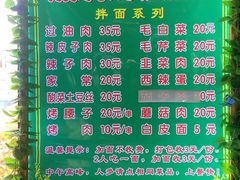 拌面系列
过油肉 35元 毛白菜 20元
辣皮子肉 35元 毛芹菜 20元
辣子肉 30元 韭菜肉 20元
家常 20元 西辣蛋 20元
酸菜土豆丝 20元 茄子 0元
烤腰子 20元 蘑菇肉 20元
烤肉 10元/串 白皮面 5元
温馨提示：加面不收费，打包收3元/份。
2人吃一面，加面收3元/份。
中午高峰，人多请点相同菜品，上餐快！